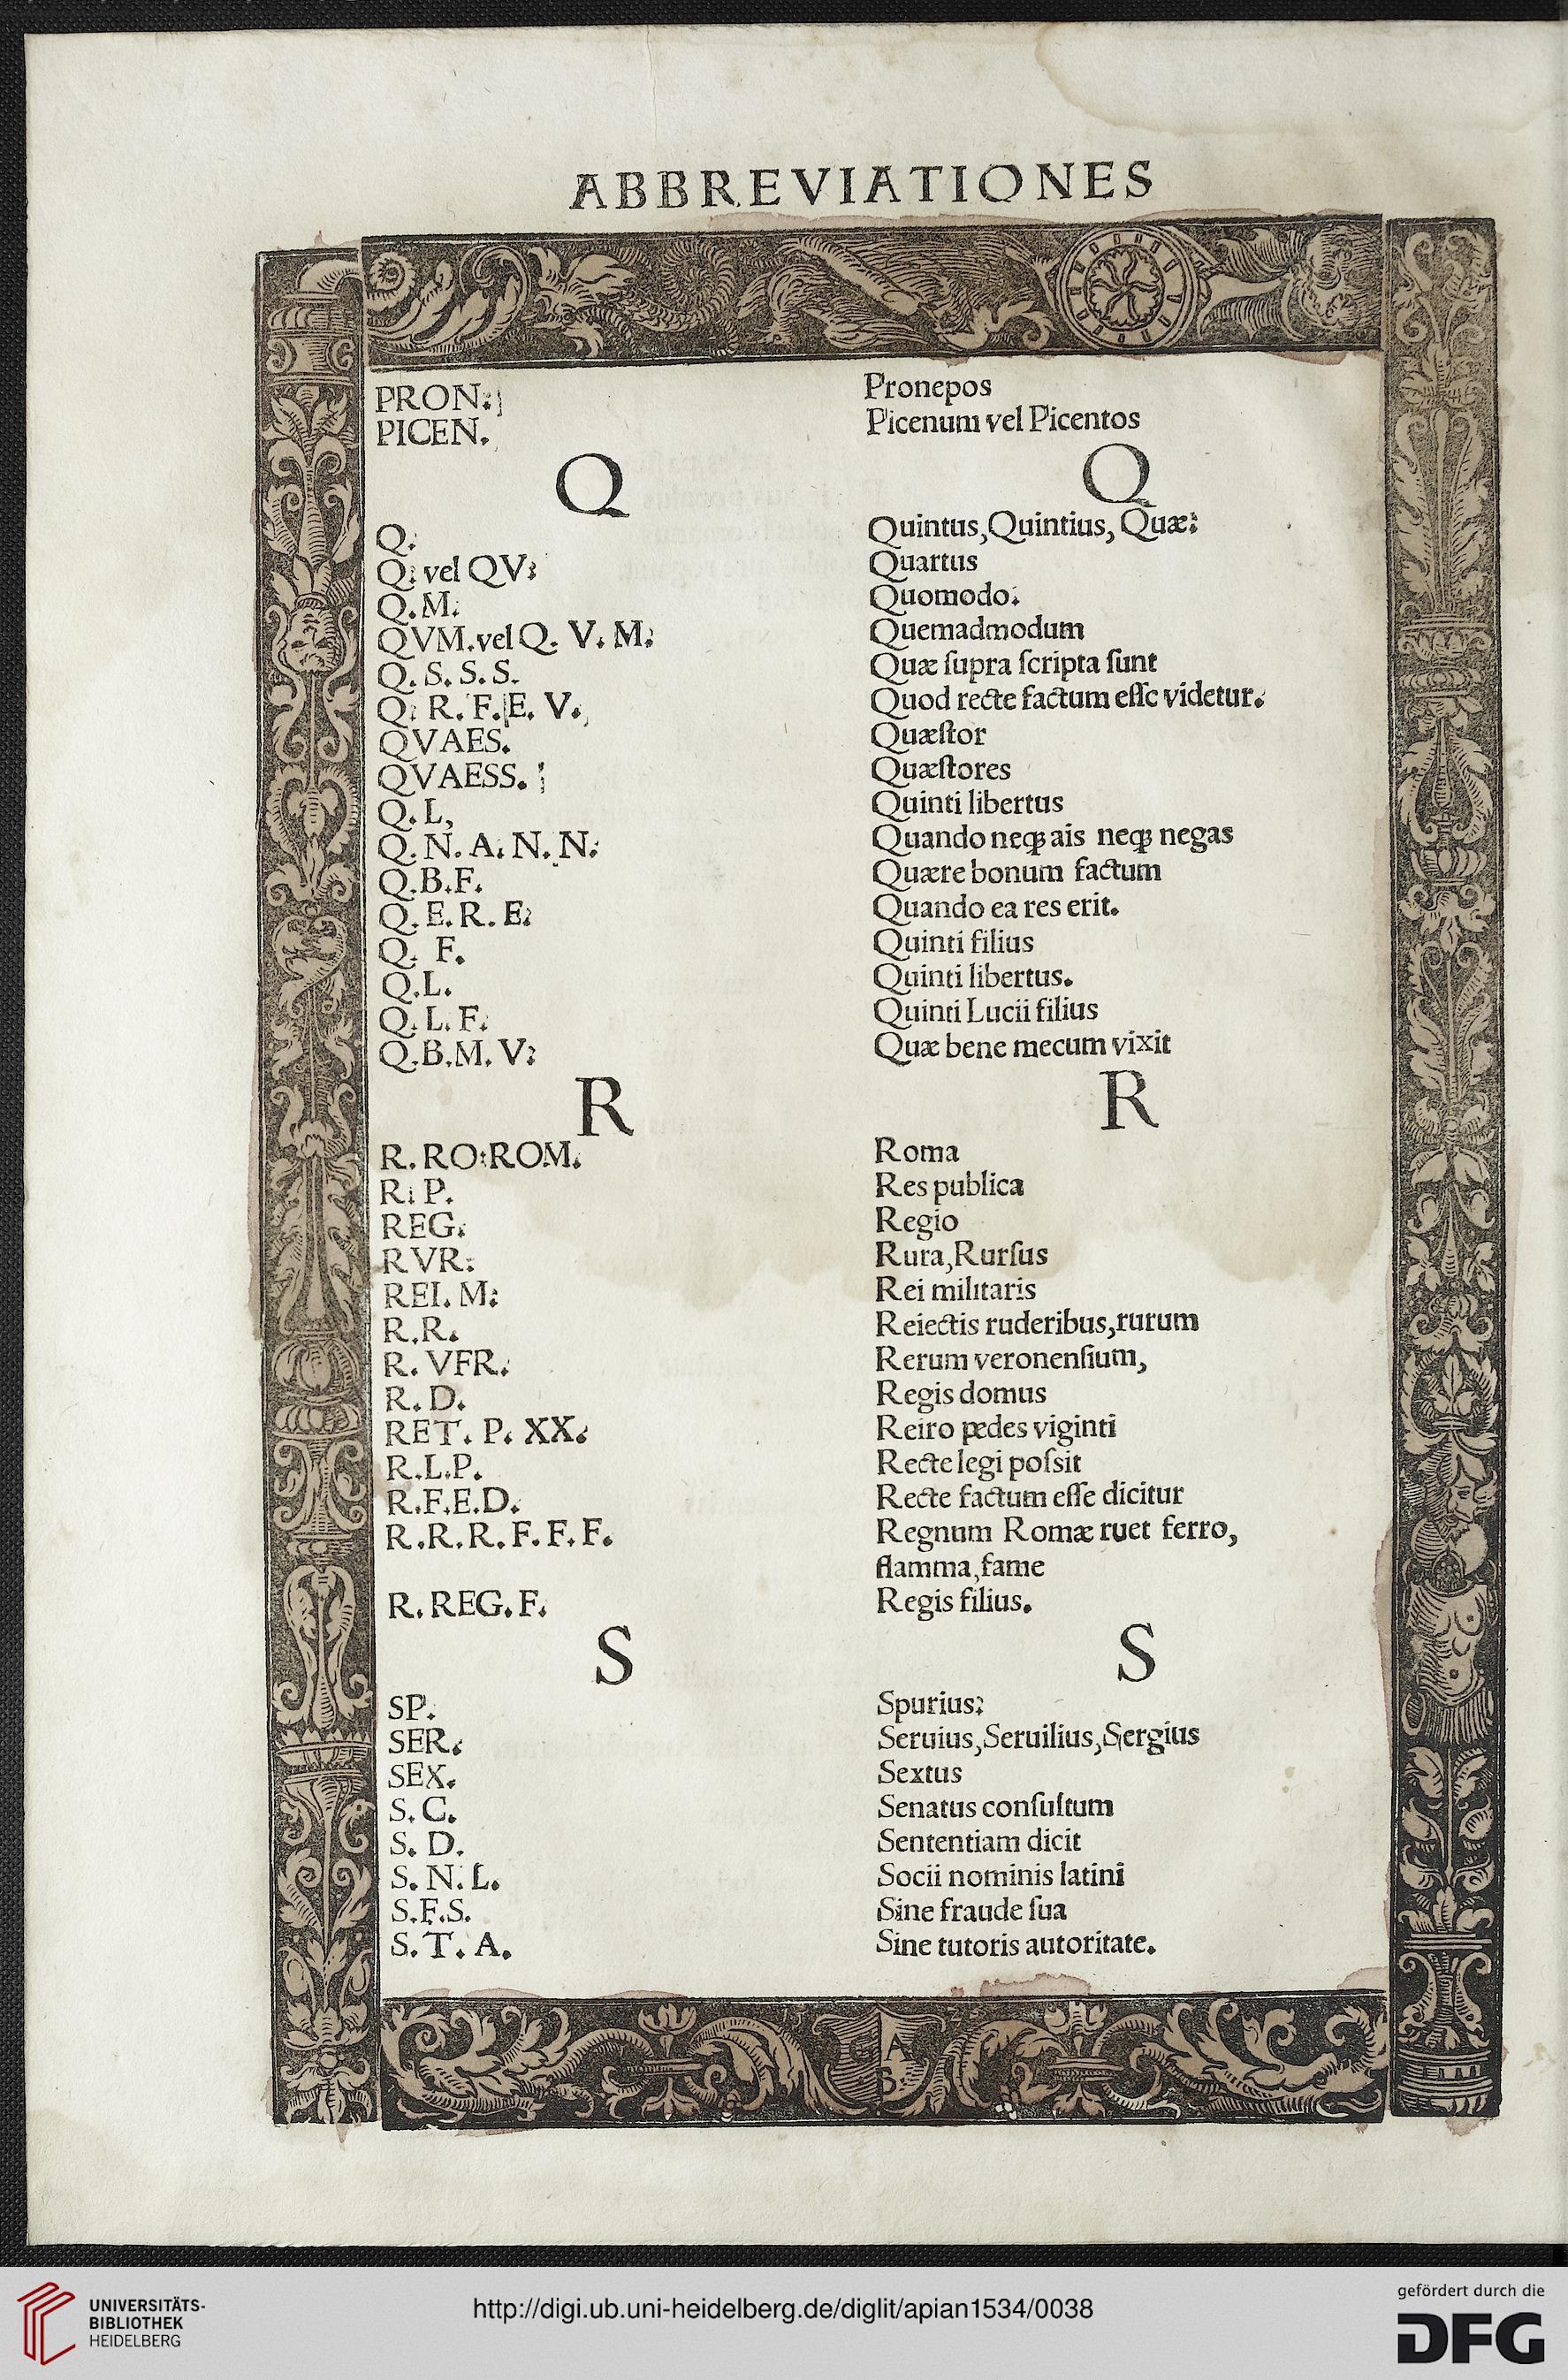 ABBREVIATIONES
PRON. Pronepos
PICEN. Picenum vel Picentos
Q Q
Q. Quintus, Quintius, Quæ:
Q. vel QV: Quartus
Q. M. Quomodo.
QVM. vel Q. V. M. Quemadmodum
Q. S. S. S. Quæ ſupra ſcripta ſunt
Q. R. F. E. V. Quod recte factum eſſe videtur.
QVAES. Quæſtor
QVAESS. Quæſtores
Q. L, Quinti libertus
Q. N. A. N. N. Quando neqꝫ ais neqꝫ negas
Q.B.F. Quære bonum factum
Q. E. R. E. Quando ea res erit.
Q. F. Quinti filius
Q.L. Quinti libertus.
Q. L. F. Quinti Lucii filius
Q.B.M. V: Quæ bene mecum vixit
R R
R. RO:ROM. Roma
R. P. Res publica
REG. Regio
RVR. Rura, Rurſus
REI. M: Rei militaris
R.R. Reiectis ruderibus, rurum
R. VFR. Rerum veronenſium,
R. D. Regis domus
RET. P. XX. Reiro pedes viginti
R.L.P. Recte legi poſsit
R.F.E.D. Recte factum eſſe dicitur
R.R.R.F.F.F. Regnum Romæ ruet ferro,
flamma, fame
R. REG. F. Regis filius.
S S
SP. Spurius:
SER. Seruius, Seruilius, Sergius
SEX. Sextus
S. C. Senatus conſultum
S. D. Sententiam dicit
S. N. L. Socii nominis latini
S.F.S. Sine fraude ſua
S. T. A. Sine tutoris autoritate.
A
B
UNIVERSITÄTS-
BIBLIOTHEK
HEIDELBERG
http://digi.ub.uni-heidelberg.de/diglit/apian1534/0038
gefördert durch die
DFG